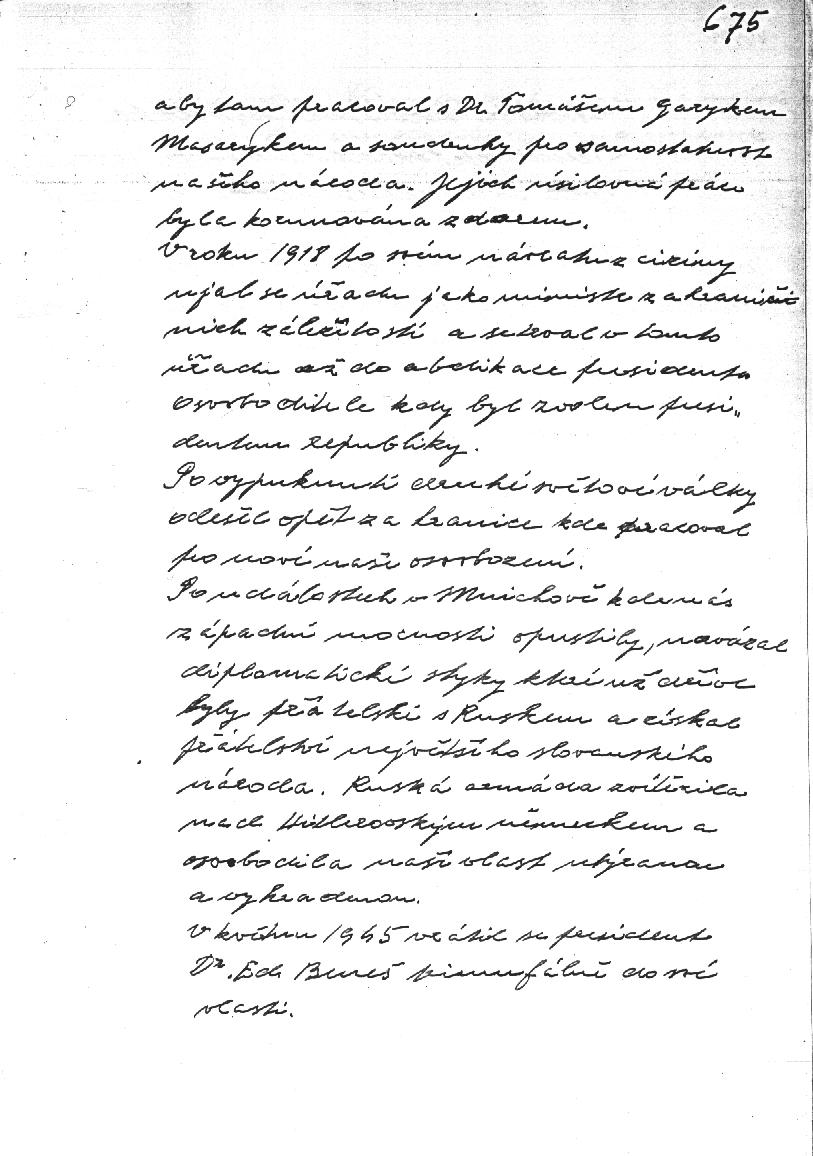 675
aby tam pracoval s Dr. Tomášem Garykem
Masarykem a soudruhy pro samostatnost
našeho národa. Jejich úsilovná práce
byla korunována zdarem.
V roku 1918 po svém návratu z ciziny
ujal se úřadu jako ministr zahranič
ních záležitostí a setrval v tomto
úřadu až do abdikace presidenta
Osvoboditele kdy byl zvolen presi„
dentem republiky.
Po vypuknutí druhé světové války
odešel opět za hranice kde pracoval
pro nové naše osvobození.
Po událostech v Mnichově kde nás
západní mocnosti opustily, navázal
diplomatické styky které už dříve
byly přátelské s Ruskem a získal
přátelství největšího slovanského
národa. Ruská armáda zvítězila
nad Hitlerovským německem a
osvobodila naši vlast utýranou
a vykradenou.
V květnu 1945 vrátil se president
Dr. Ed. Beneš triumfálně do své
vlasti.